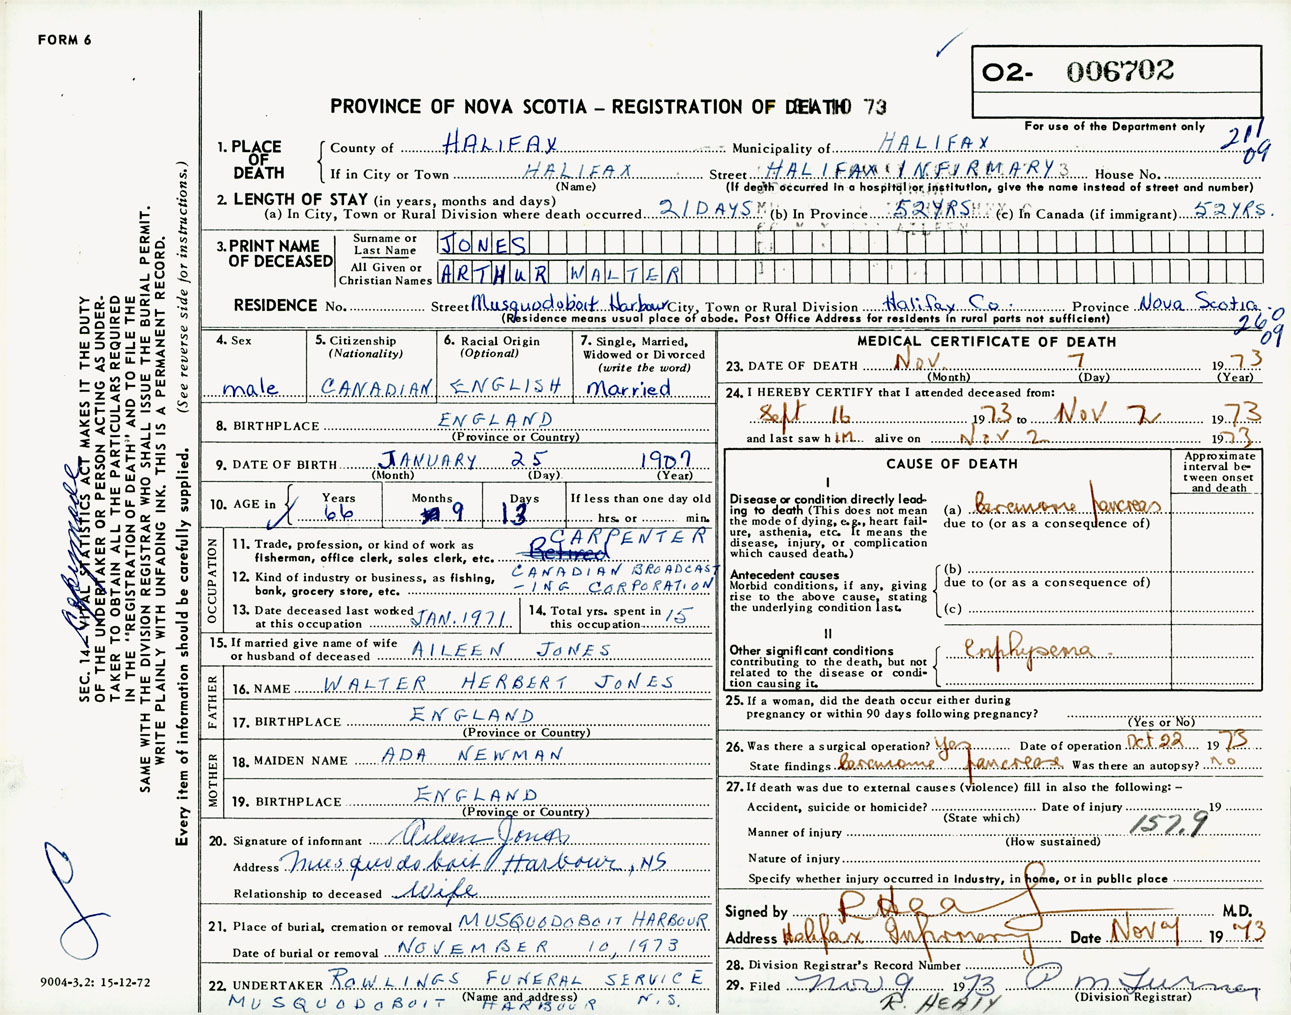 FORM 6
O2- 006702
PROVINCE OF NOVA SCOTIA – REGISTRATION OF DEATH 73
For use of the Department only
211
09
1. PLACE OF DEATH
County of HALIFAX Municipality of HALIFAX
If in City or Town HALIFAX Street HALIFAX INFIRMARY House No.
(Name) (If death occurred in a hospital or institution, give the name instead of street and number)
2. LENGTH OF STAY (in years, months and days)
(a) In City, Town or Rural Division where death occurred 21 DAYS (b) In Province 52 YRS (c) In Canada (if immigrant) 52 YRS.
3. PRINT NAME OF DECEASED
Surname or Last Name JONES
All Given or Christian Names ARTHUR WALTER
RESIDENCE No. Street Musquodoboit Harbour City, Town or Rural Division Halifax Co. Province Nova Scotia
(Residence means usual place of abode. Post Office Address for residents in rural parts not sufficient)
260
09
4. Sex male
5. Citizenship (Nationality) CANADIAN
6. Racial Origin (Optional) ENGLISH
7. Single, Married, Widowed or Divorced (write the word) Married
8. BIRTHPLACE ENGLAND
(Province or Country)
9. DATE OF BIRTH JANUARY 25 1907
(Month) (Day) (Year)
10. AGE in Years 66 Months 9 Days 13 If less than one day old
hrs. or min.
OCCUPATION
11. Trade, profession, or kind of work as fisherman, office clerk, sales clerk, etc. Retired CARPENTER
12. Kind of industry or business, as fishing, bank, grocery store, etc. CANADIAN BROADCAST
-ING CORPORATION
13. Date deceased last worked at this occupation JAN. 1971
14. Total yrs. spent in this occupation 15
15. If married give name of wife or husband of deceased AILEEN JONES
FATHER
16. NAME WALTER HERBERT JONES
17. BIRTHPLACE ENGLAND
(Province or Country)
MOTHER
18. MAIDEN NAME ADA NEWMAN
19. BIRTHPLACE ENGLAND
(Province or Country)
20. Signature of informant Aileen Jones
Address Musquodoboit Harbour, NS
Relationship to deceased Wife
21. Place of burial, cremation or removal MUSQUODOBOIT HARBOUR
Date of burial or removal NOVEMBER 10, 1973
22. UNDERTAKER ROWLINGS FUNERAL SERVICE
(Name and address)
MUSQUODOBOIT HARBOUR N.S.
MEDICAL CERTIFICATE OF DEATH
23. DATE OF DEATH Nov. 7 1973
(Month) (Day) (Year)
24. I HEREBY CERTIFY that I attended deceased from:
Sept 16 1973 to Nov 7 1973
and last saw him alive on Nov 2 1973
CAUSE OF DEATH
Approximate interval between onset and death
I
Disease or condition directly leading to death (This does not mean the mode of dying, e.g., heart failure, asthenia, etc. It means the disease, injury, or complication which caused death.)
(a) Carcinoma pancreas
due to (or as a consequence of)
Antecedent causes
Morbid conditions, if any, giving rise to the above cause, stating the underlying condition last.
(b)
due to (or as a consequence of)
(c)
II
Other significant conditions contributing to the death, but not related to the disease or condition causing it.
Emphysema
25. If a woman, did the death occur either during pregnancy or within 90 days following pregnancy?
(Yes or No)
26. Was there a surgical operation? Yes Date of operation Oct 22 1973
State findings Carcinoma pancreas Was there an autopsy? no
27. If death was due to external causes (violence) fill in also the following: –
Accident, suicide or homicide? Date of injury 19
(State which)
157.9
Manner of injury
(How sustained)
Nature of injury
Specify whether injury occurred in Industry, in home, or in public place
Signed by M.D.
Address Halifax Infirmary Date Nov 7 1973
28. Division Registrar's Record Number
29. Filed Nov 9 1973 P M Turner
(Division Registrar)
R. HEALY
SEC. 14. VITAL STATISTICS ACT MAKES IT THE DUTY
OF THE UNDERTAKER OR PERSON ACTING AS UNDER-
TAKER TO OBTAIN ALL THE PARTICULARS REQUIRED
IN THE "REGISTRATION OF DEATH" AND TO FILE THE
SAME WITH THE DIVISION REGISTRAR WHO SHALL ISSUE THE BURIAL PERMIT.
WRITE PLAINLY WITH UNFADING INK. THIS IS A PERMANENT RECORD.
Every item of information should be carefully supplied. (See reverse side for instructions.)
9004-3.2: 15-12-72